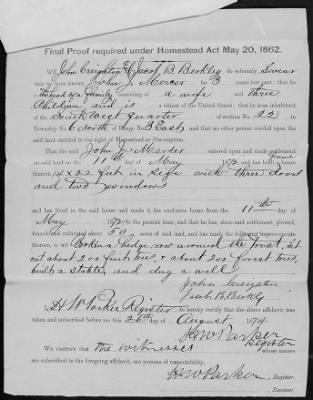 Final Proof required under Homestead Act May 20, 1862.
WE, John Creighton & Jacob B. Berkley do solemnly Swear
that we have known John J. Mercer for 3 years last past; that he
is the head of a family consisting of a wife and three
Children and is a citizen of the United States; that he is an inhabitant
of the South West quarter of section No. 22 in
Township No. 6 North of Range 3 East and that no other person resided upon the
said land entitled to the right of Homestead or Pre-emption.
That the said John J. Mercer entered upon and made settlement
on said land on the 11th day of May, 187 and has built a house frame
thereon 14 x 22 feet in size with three doors
and two windows
and has lived in the said house and made it his exclusive home from the 11th day of
May 187 to the present time, and that he has, since said settlement, plowed,
fenced and cultivated about 50 acres of said land, and has made the following improvements
thereon, to wit: a hedge row around the front, set
out about 200 fruit trees, & about 200 forest trees,
built a stable, and dug a well
John Creighton
Jacob B. Berkley
I, H W Parker Register do hereby certify that the above affidavit was
taken and subscribed before me this 26th day of August 1874
H W Parker
Register
WE CERTIFY that the witnesses whose names
are subscribed to the foregoing affidavit, are persons of respectability.
H W Parker, Register.
, Receiver.